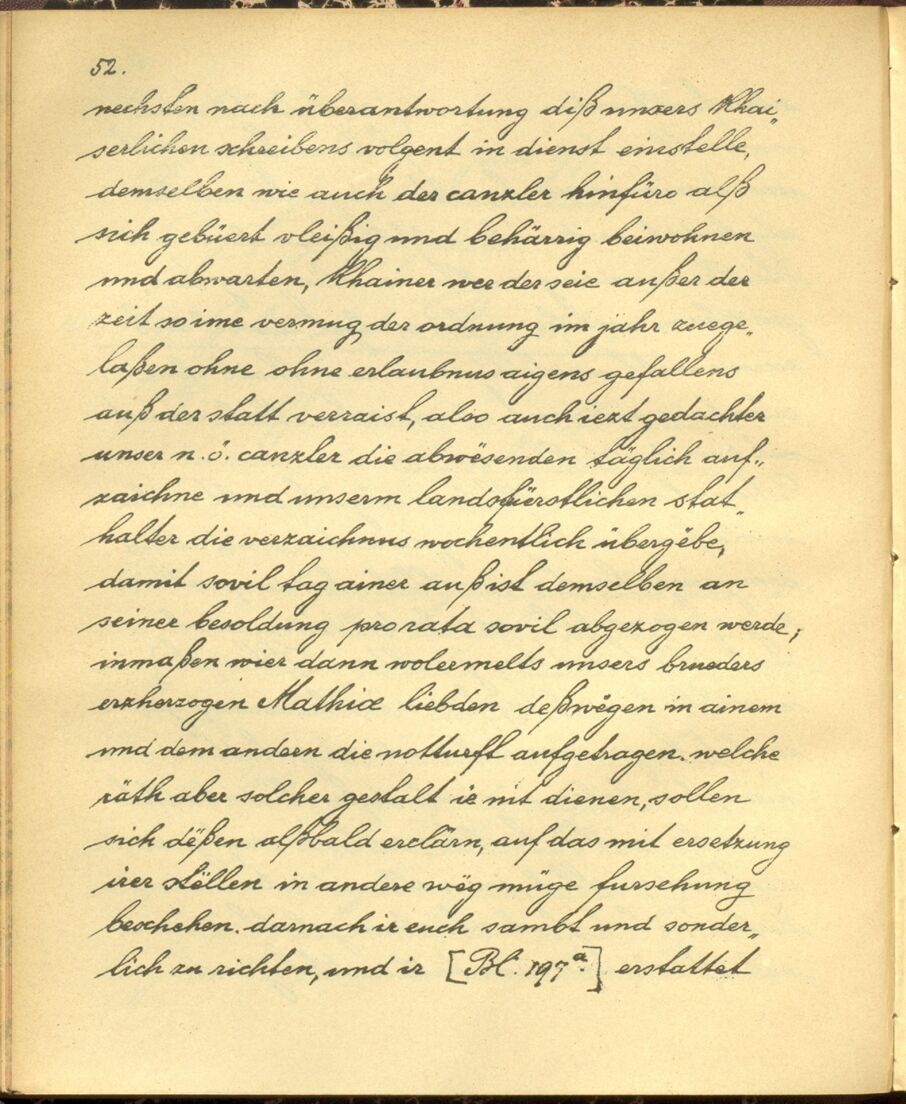 52.
nechsten nach überantwortung diß unsers Khai„
serlichen schreibens volgent in dienst einstelle,
demselben wie auch der canzler hinfüro alß
sich gebüert vleißig und behärrig beiwohnen
und abwarten, Khainer wer der seie außer der
zeit so ime vermug der ordnung im jahr zuege„
laßen ohne ohne erlaubnus aigens gefallens
auß der statt verraist, also auch iezt gedachter
unser n. ö. canzler die abwësenden täglich auf„
zaichne und unserm landsfüerstlichen stat„
halter die verzaichnus wochentlich übergëbe,
damit sovil tag ainer auß ist demselben an
seiner besoldung pro rata sovil abgezogen werde;
inmaßen wier dann wolermelts unsers brueders
erzherzogen Mathiæ liebden deßwëgen in ainem
und dem andern die notturft aufgetragen. welche
räth aber solcher gestalt ie nit dienen, sollen
sich dëßen alßbald erclärn, auf das mit ersetzung
irer stëllen in andere wëg müge fursehung
beschehen. darnach ir euch sambt und sonder„
lich zu richten, und ir [Bl. 197a.] erstattet